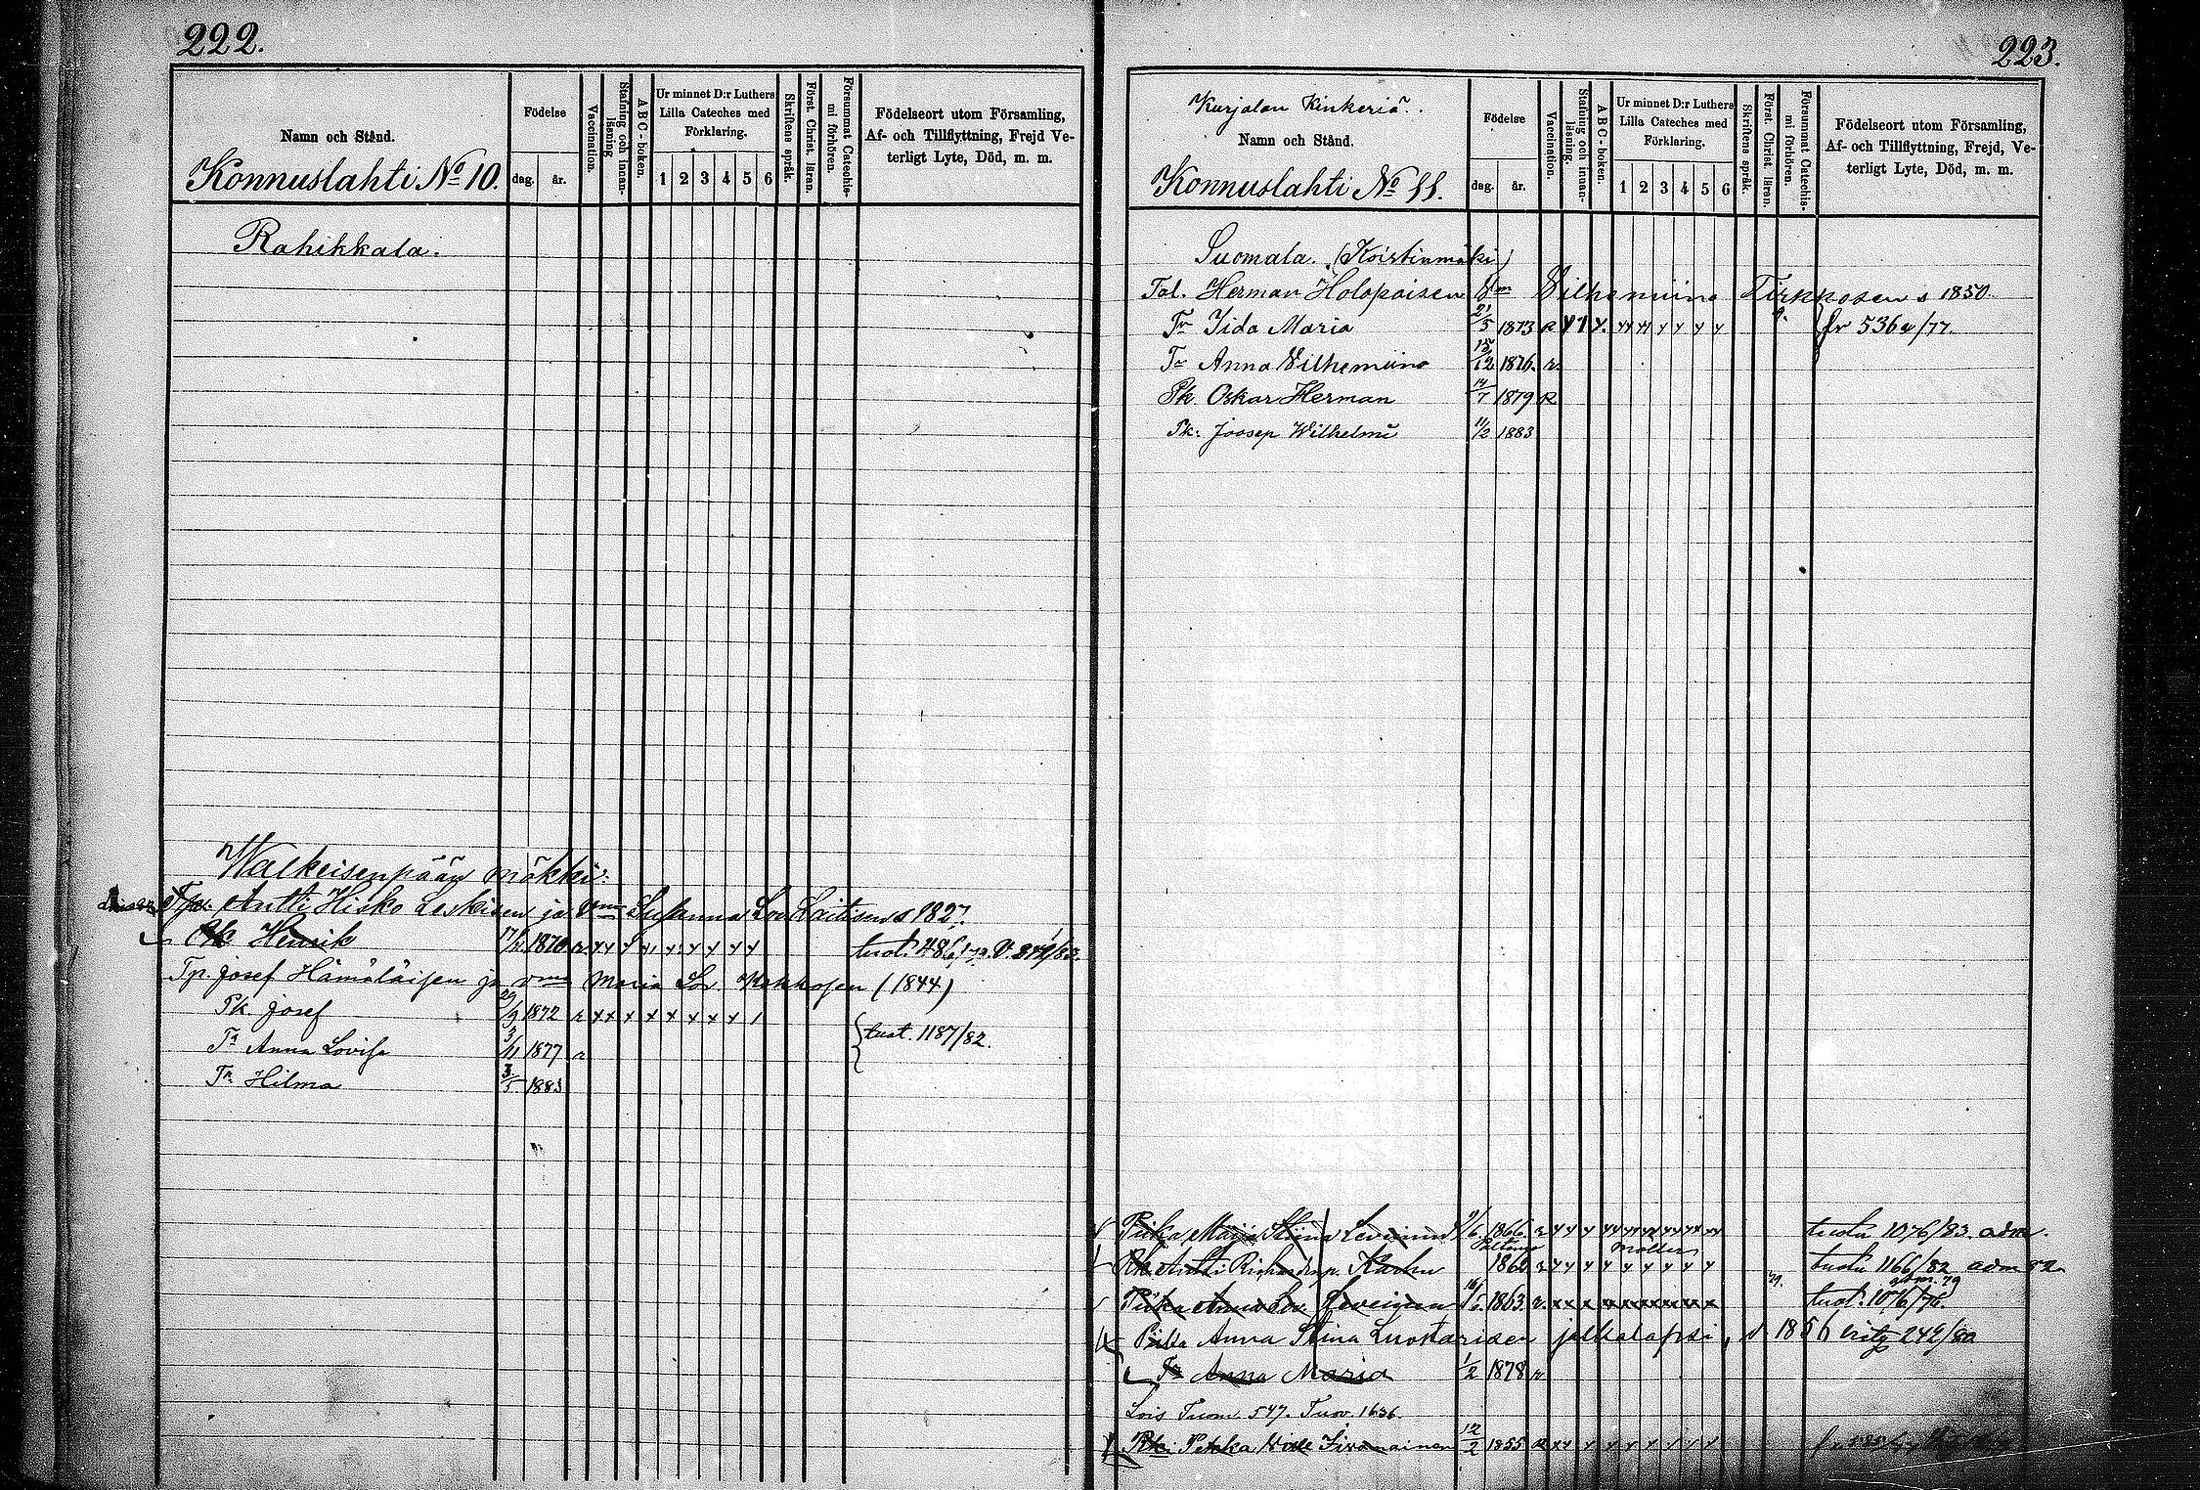 222.
Namn och Stånd.
Konnuslahti No 10.
Födelse
dag. år.
Vaccination.
Stafning och innanläsning
ABC-boken.
Ur minnet D:r Luthers Lilla Cateches med Förklaring.
1 2 3 4 5 6
Skriftens språk.
Först. Christ. läran.
Försummat Catechismi förhören.
Födelseort utom Församling,
Af- och Tillflyttning, Frejd Ve-
terligt Lyte, Död, m. m.
Rahikkala.
Walkeisenpään mökki:
Antti Hisko Leskisen ja vmn Susanna Lov. Laitisen s 1827
Pk Henrik 17/2 1870
Tp. Josef Hämäläisen ja vmn Maria Lov. Kokkosen (1844)
Pk Josef 29/9 1872 r x x x x x x x x 1
Tr Anna Lovisa 3/11 1877 r
{tuot. 1187/82.
Tr. Hilma 3/5 1883
223.
Kurjalan Kinkeriä.
Namn och Stånd.
Konnuslahti No 11.
Födelse
dag. år.
Vaccination.
Stafning och innanläsning.
ABC-boken.
Ur minnet D:r Luthers
Lilla Cateches med
Förklaring.
1 2 3 4 5 6
Skriftens språk.
Först. Christ läran.
Försummat Catechismi förhören.
Födelseort utom Församling,
Af- och Tillflyttning, Frejd, Ve-
terligt Lyte, Död, m. m.
Suomala. (Koistinmäki)
Tal. Herman Holopaisen Vilhemiina Tirkkosen s 1850.
Tr Iida Maria 21/5 1873 R
{fr 536 /77.
Tr Anna Vilhemiina 15/12 1876. r.
Pk. Oskar Herman 14/7 1879 R
Pk: Joosep Wilhelmi 11/2 1883
Piika Maija Stiina 1866. tuotu 1076/83. adm.
Rk. Antti Karhu 1862 tuotu 1166/82 adm 82
Piika Anna Lov. 1863. tuot. 1076/78.
Piika Anna Stina Luostarisen jalkalapsi, s 1856 242/80
Tr Anna Maria 1/2 1878 r
Lois Tuom. 547. Tuov. 1636.
Rk. Pekka 12/2 1855 R